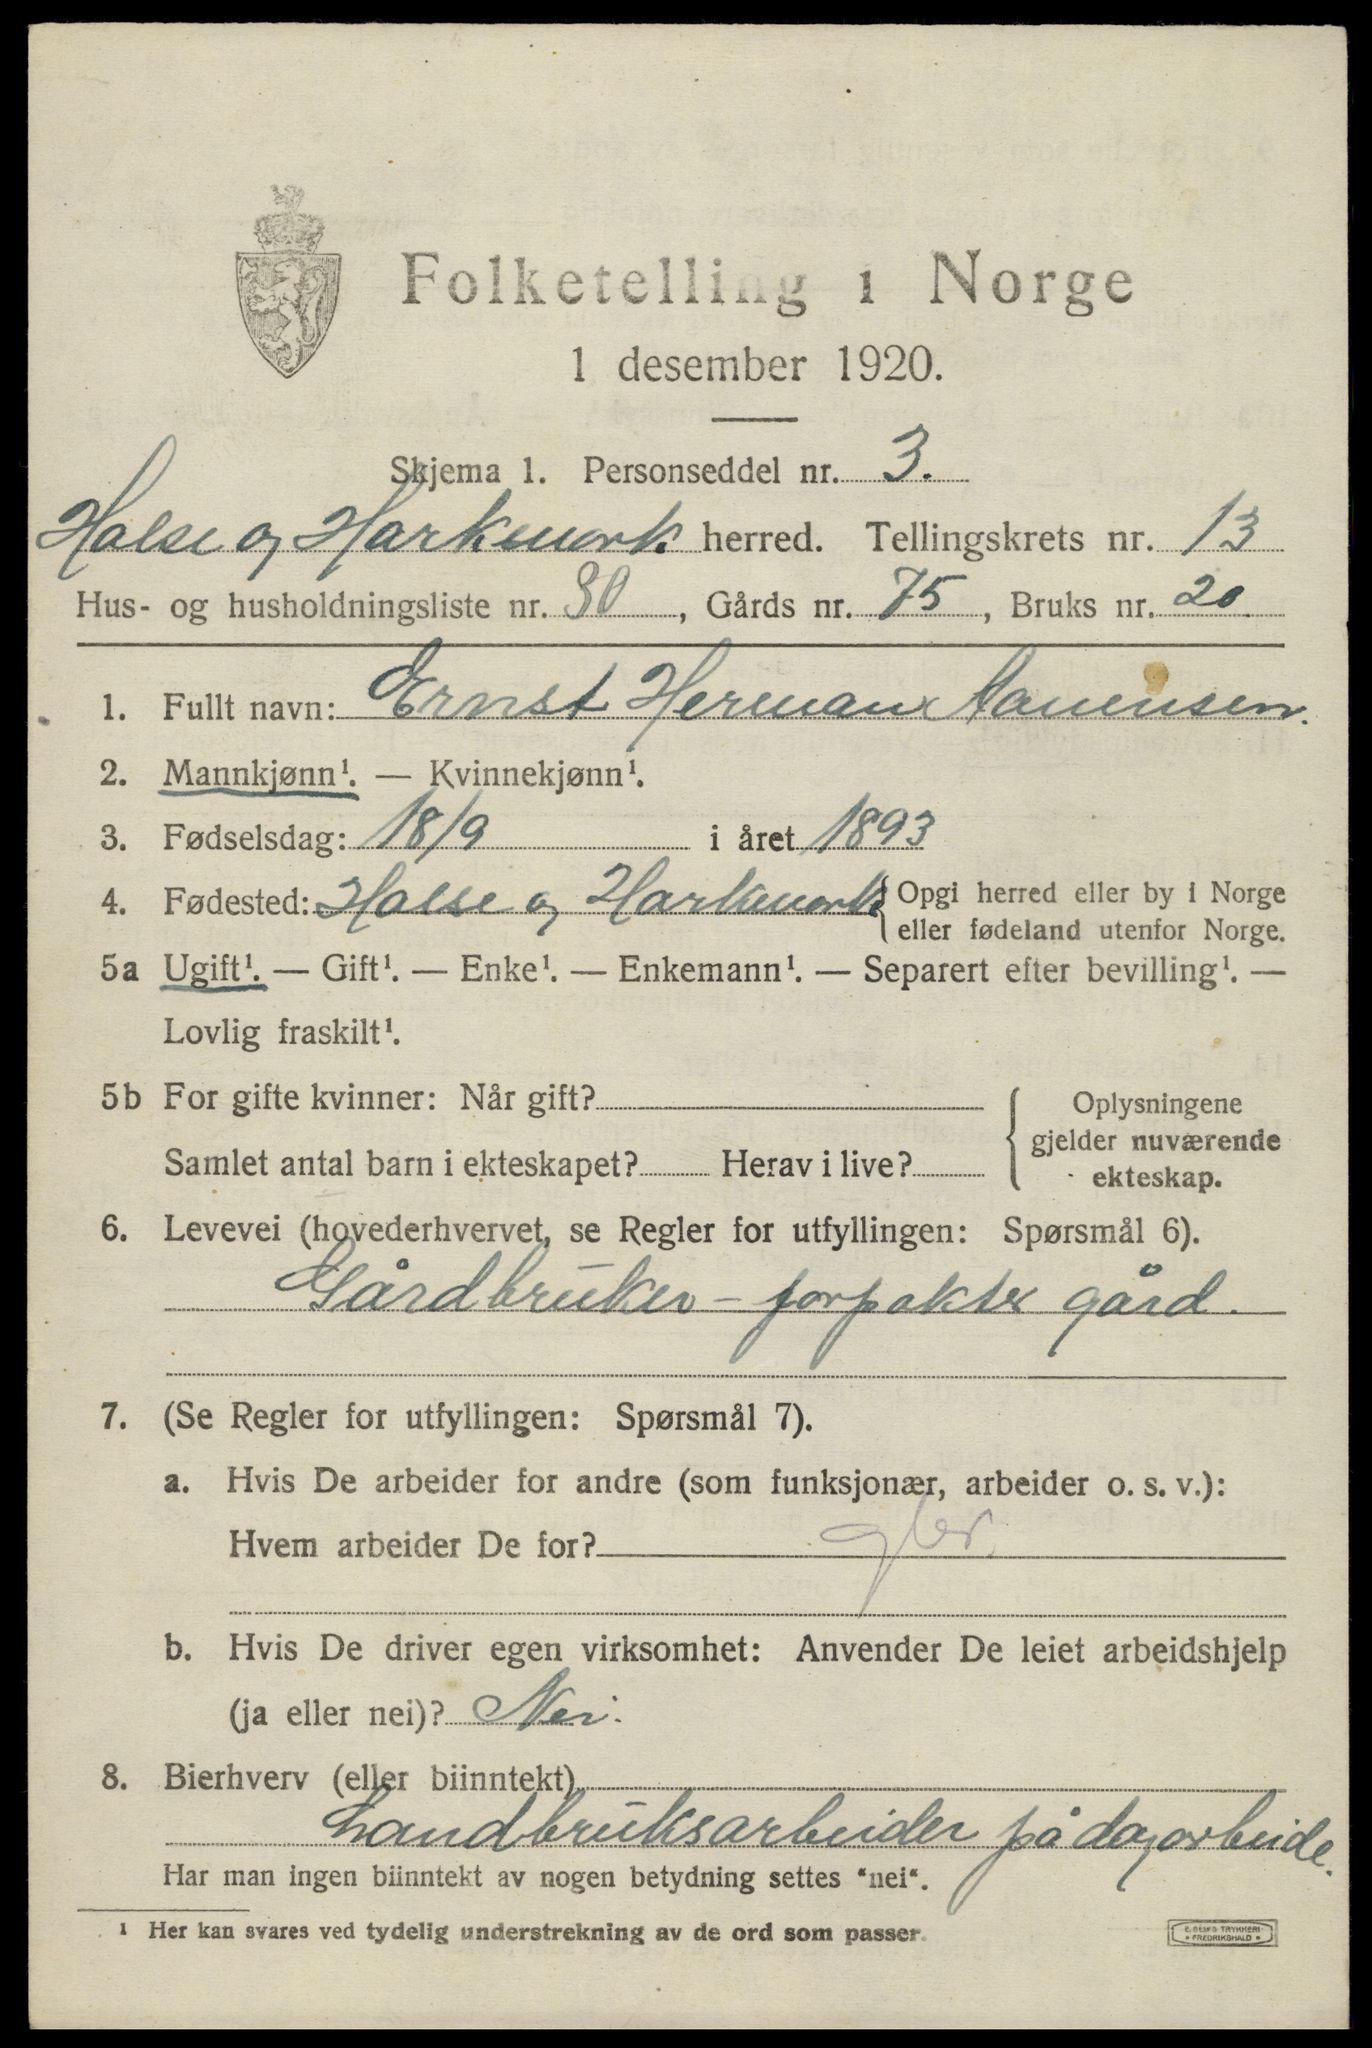 Folketelling i Norge
1 desember 1920.
Skjema 1. Personseddel nr. 3.
Halse og Harkmark herred. Tellingskrets nr. 13
Hus- og husholdningsliste nr. 30, Gårds nr. 75, Bruks nr. 20.
1. Fullt navn: Ernst Herman Aanensen.
2. Mannkjønn¹. — Kvinnekjønn¹.
3. Fødselsdag: 18/9 i året 1893
4. Fødested: Halse og Harkmark { Opgi herred eller by i Norge
eller fødeland utenfor Norge.
5a Ugift¹. — Gift¹. — Enke¹. — Enkemann¹. — Separert efter bevilling¹. —
Lovlig fraskilt¹.
5b For gifte kvinner: Når gift?
Samlet antal barn i ekteskapet? Herav i live?
{ Oplysningene
gjelder nuværende
ekteskap.
6. Levevei (hovederhvervet, se Regler for utfyllingen: Spørsmål 6).
Gårdbruker – forpakter gård.
7. (Se Regler for utfyllingen: Spørsmål 7).
a. Hvis De arbeider for andre (som funksjonær, arbeider o. s. v.):
Hvem arbeider De for?
b. Hvis De driver egen virksomhet: Anvender De leiet arbeidshjelp
(ja eller nei)? Nei.
8. Bierhverv (eller biinntekt)
Landbruksarbeider på dagarbeide.
Har man ingen biinntekt av nogen betydning settes "nei".
¹ Her kan svares ved tydelig understrekning av de ord som passer.
E. SEM'S TRYKKERI
FREDRIKSHALD